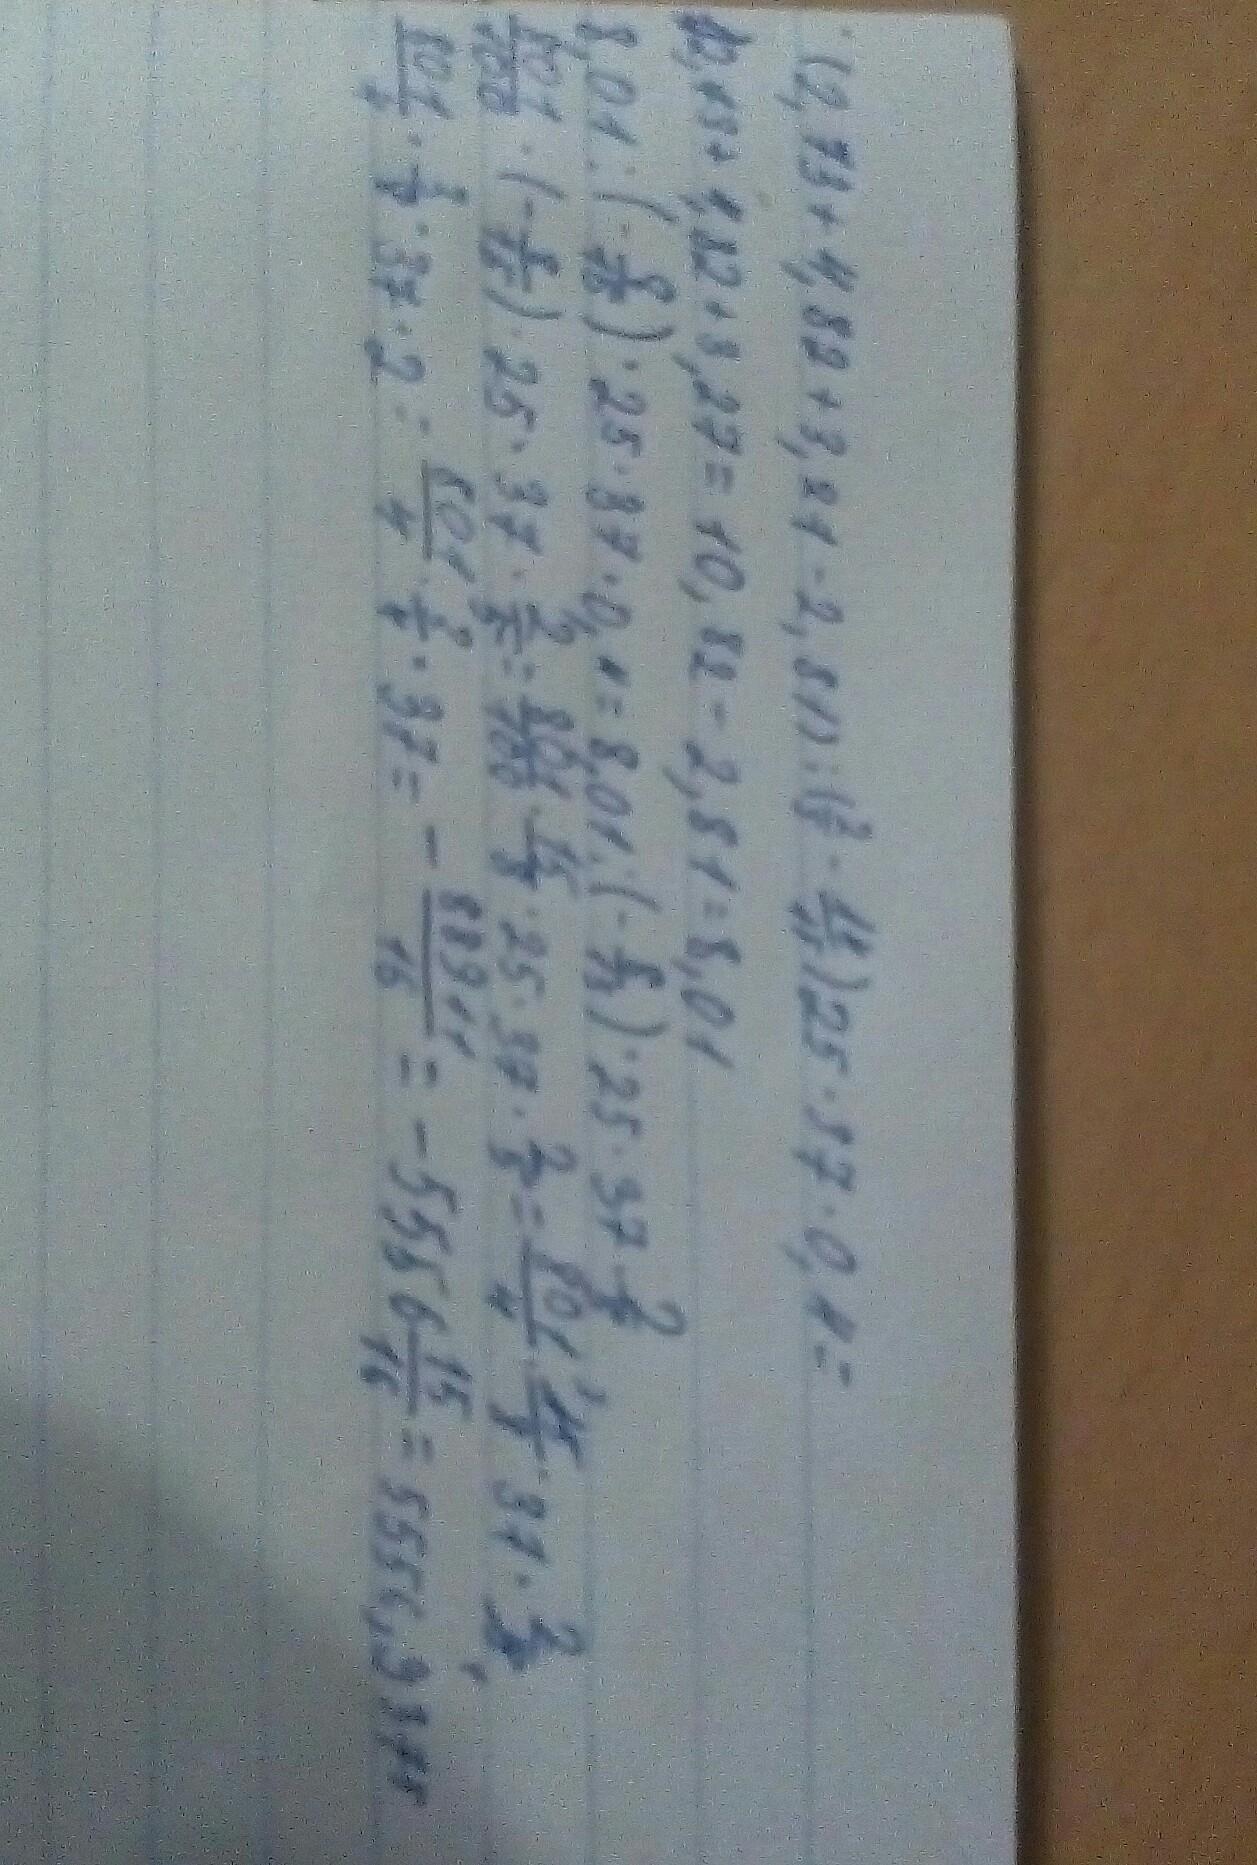 (2,73+4,82+3,27-2,81):(2/5-14/15)25·37·0,4=
2,73+4,82+3,27=10,82-2,81=8,01
8,01:(-8/15)·25·37·0,4=8,01:(-8/15)·25·37·2/5
801/100·(-8/15)·25·37·2/5=801/100·15/8·25·37·2/5=801/4·15/8·37·2/5
801/4·3/8·37·2=801/4·3/4·37=-88911/16=-5556 15/16=5556,9375